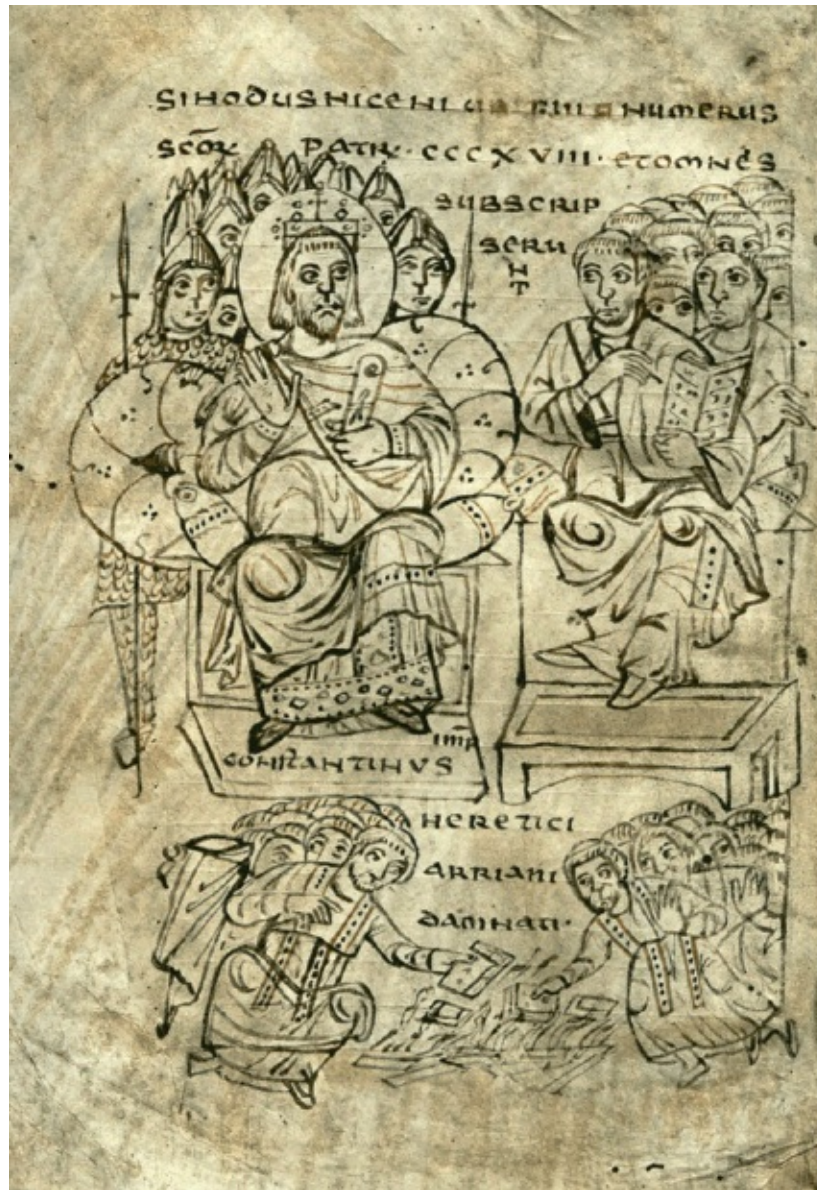 SINODUS NICENI NUMERUS
SCOR PATR · CCCXVIII · ET OMNES
SUBSCRIP
SERU
N
T
IMP
CONSTANTINUS
HERETICI
ARRIANI
DAMNATI ·